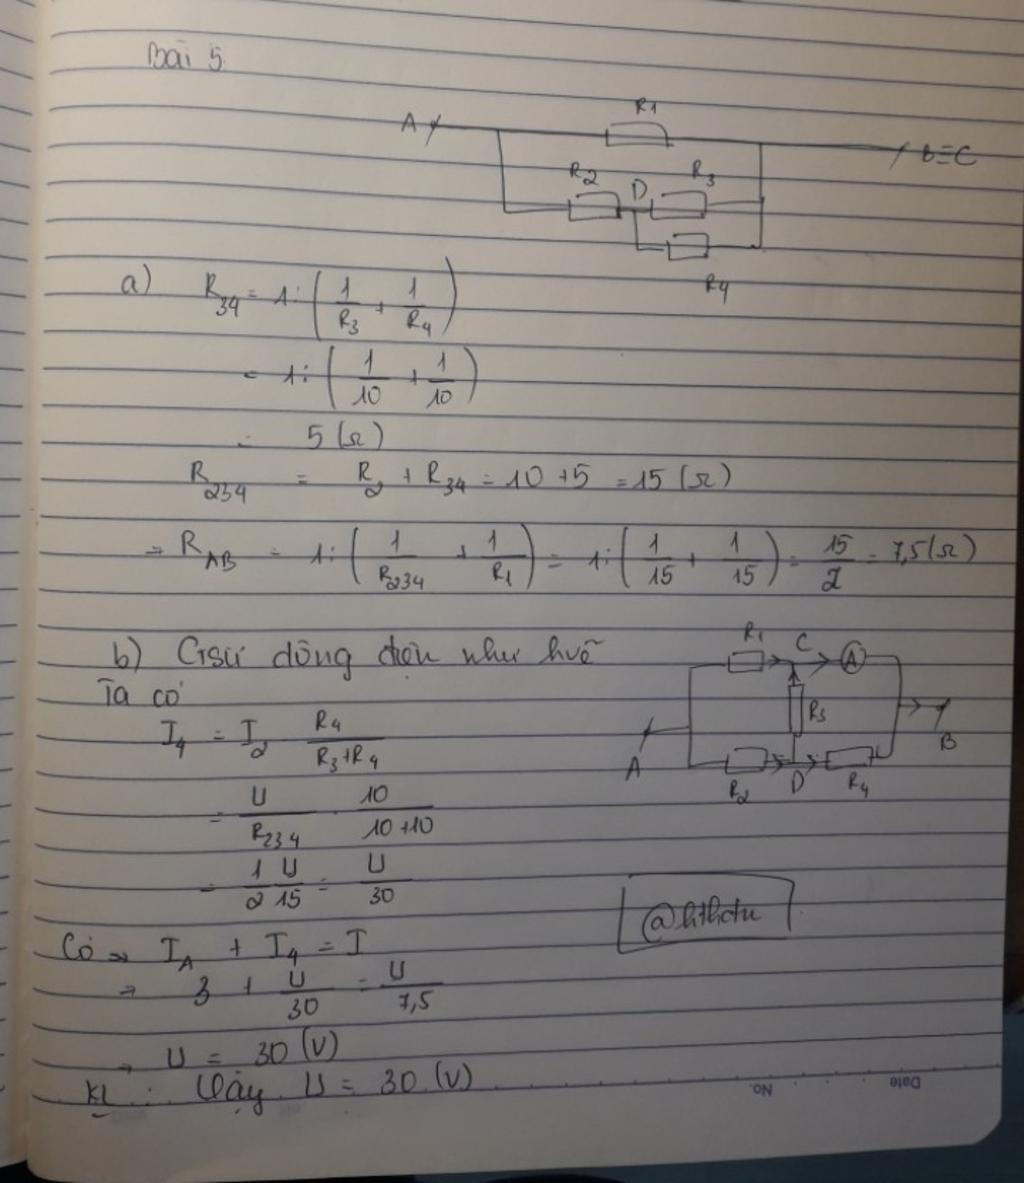 Bài 5
R1
A
B≡C
R2 D R3
R4
a) R34 = 1 : (1/R3 + 1/R4)
= 1 : (1/10 + 1/10)
= 5 (Ω)
R234 = R2 + R34 = 10 + 5 = 15 (Ω)
⇒ RAB = 1 : (1/R234 + 1/R1) = 1 : (1/15 + 1/15) = 15/2 = 7,5 (Ω)
b) Gsử dòng điện như hvẽ
Ta có
R1 C A
R3
A B
R2 D R4
I4 = I2 R4/(R3+R4)
= U/R234 . 10/(10+10)
= 1/2 U/15 = U/30
@hthctu
Có ⇒ IA + I4 = I
→ 3 + U/30 = U/7,5
→ U = 30 (V)
KL : Vậy U = 30 (V)
No.
Date